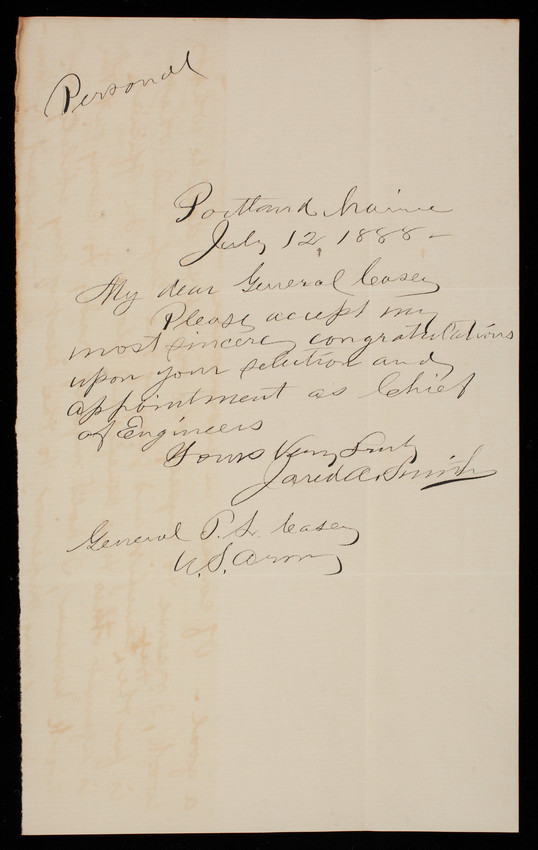 Personal
Portland Maine
July 12, 1888 -
My dear General Casey
Please accept my
most sincere congratulations
upon your selection and
appointment as Chief
of Engineers
Yours Very Truly
Jared A. Smith
General T. L. Casey
U.S. Army